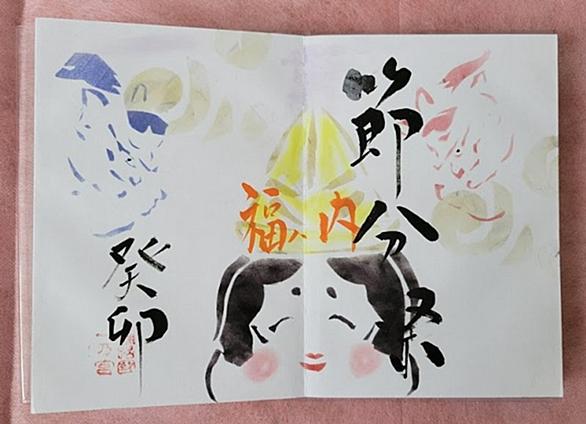 節分祭
福は内
癸卯